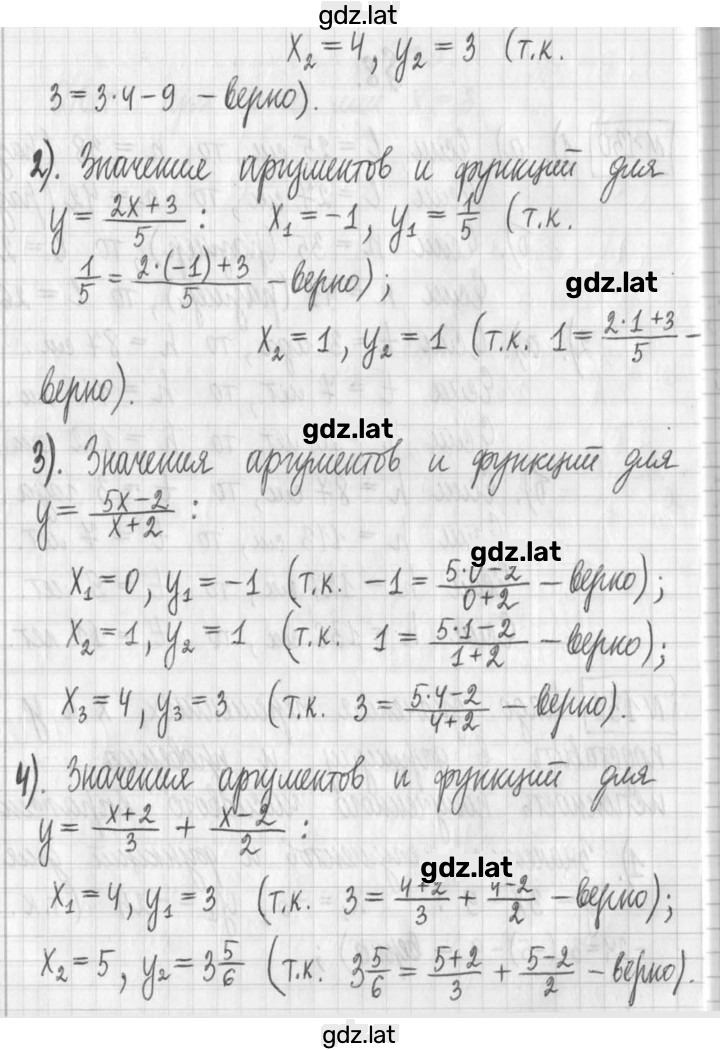 gdz.lat
x₂ = 4, y₂ = 3 (т.к.
3 = 3·4 – 9 – верно).
2). Значения аргументов и функций для
y = (2x+3)/5 : x₁ = –1, y₁ = 1/5 (т.к.
1/5 = (2·(–1)+3)/5 – верно);
gdz.lat
x₂ = 1, y₂ = 1 (т.к. 1 = (2·1+3)/5 –
верно).
gdz.lat
3). Значения аргументов и функций для
y = (5x–2)/(x+2) :
gdz.lat
x₁ = 0, y₁ = –1 (т.к. –1 = (5·0–2)/(0+2) – верно);
x₂ = 1, y₂ = 1 (т.к. 1 = (5·1–2)/(1+2) – верно);
x₃ = 4, y₃ = 3 (т.к. 3 = (5·4–2)/(4+2) – верно).
4). Значения аргументов и функций для
y = (x+2)/3 + (x–2)/2 :
gdz.lat
x₁ = 4, y₁ = 3 (т.к. 3 = (4+2)/3 + (4–2)/2 – верно);
x₂ = 5, y₂ = 3 5/6 (т.к. 3 5/6 = (5+2)/3 + (5–2)/2 – верно).
gdz.lat